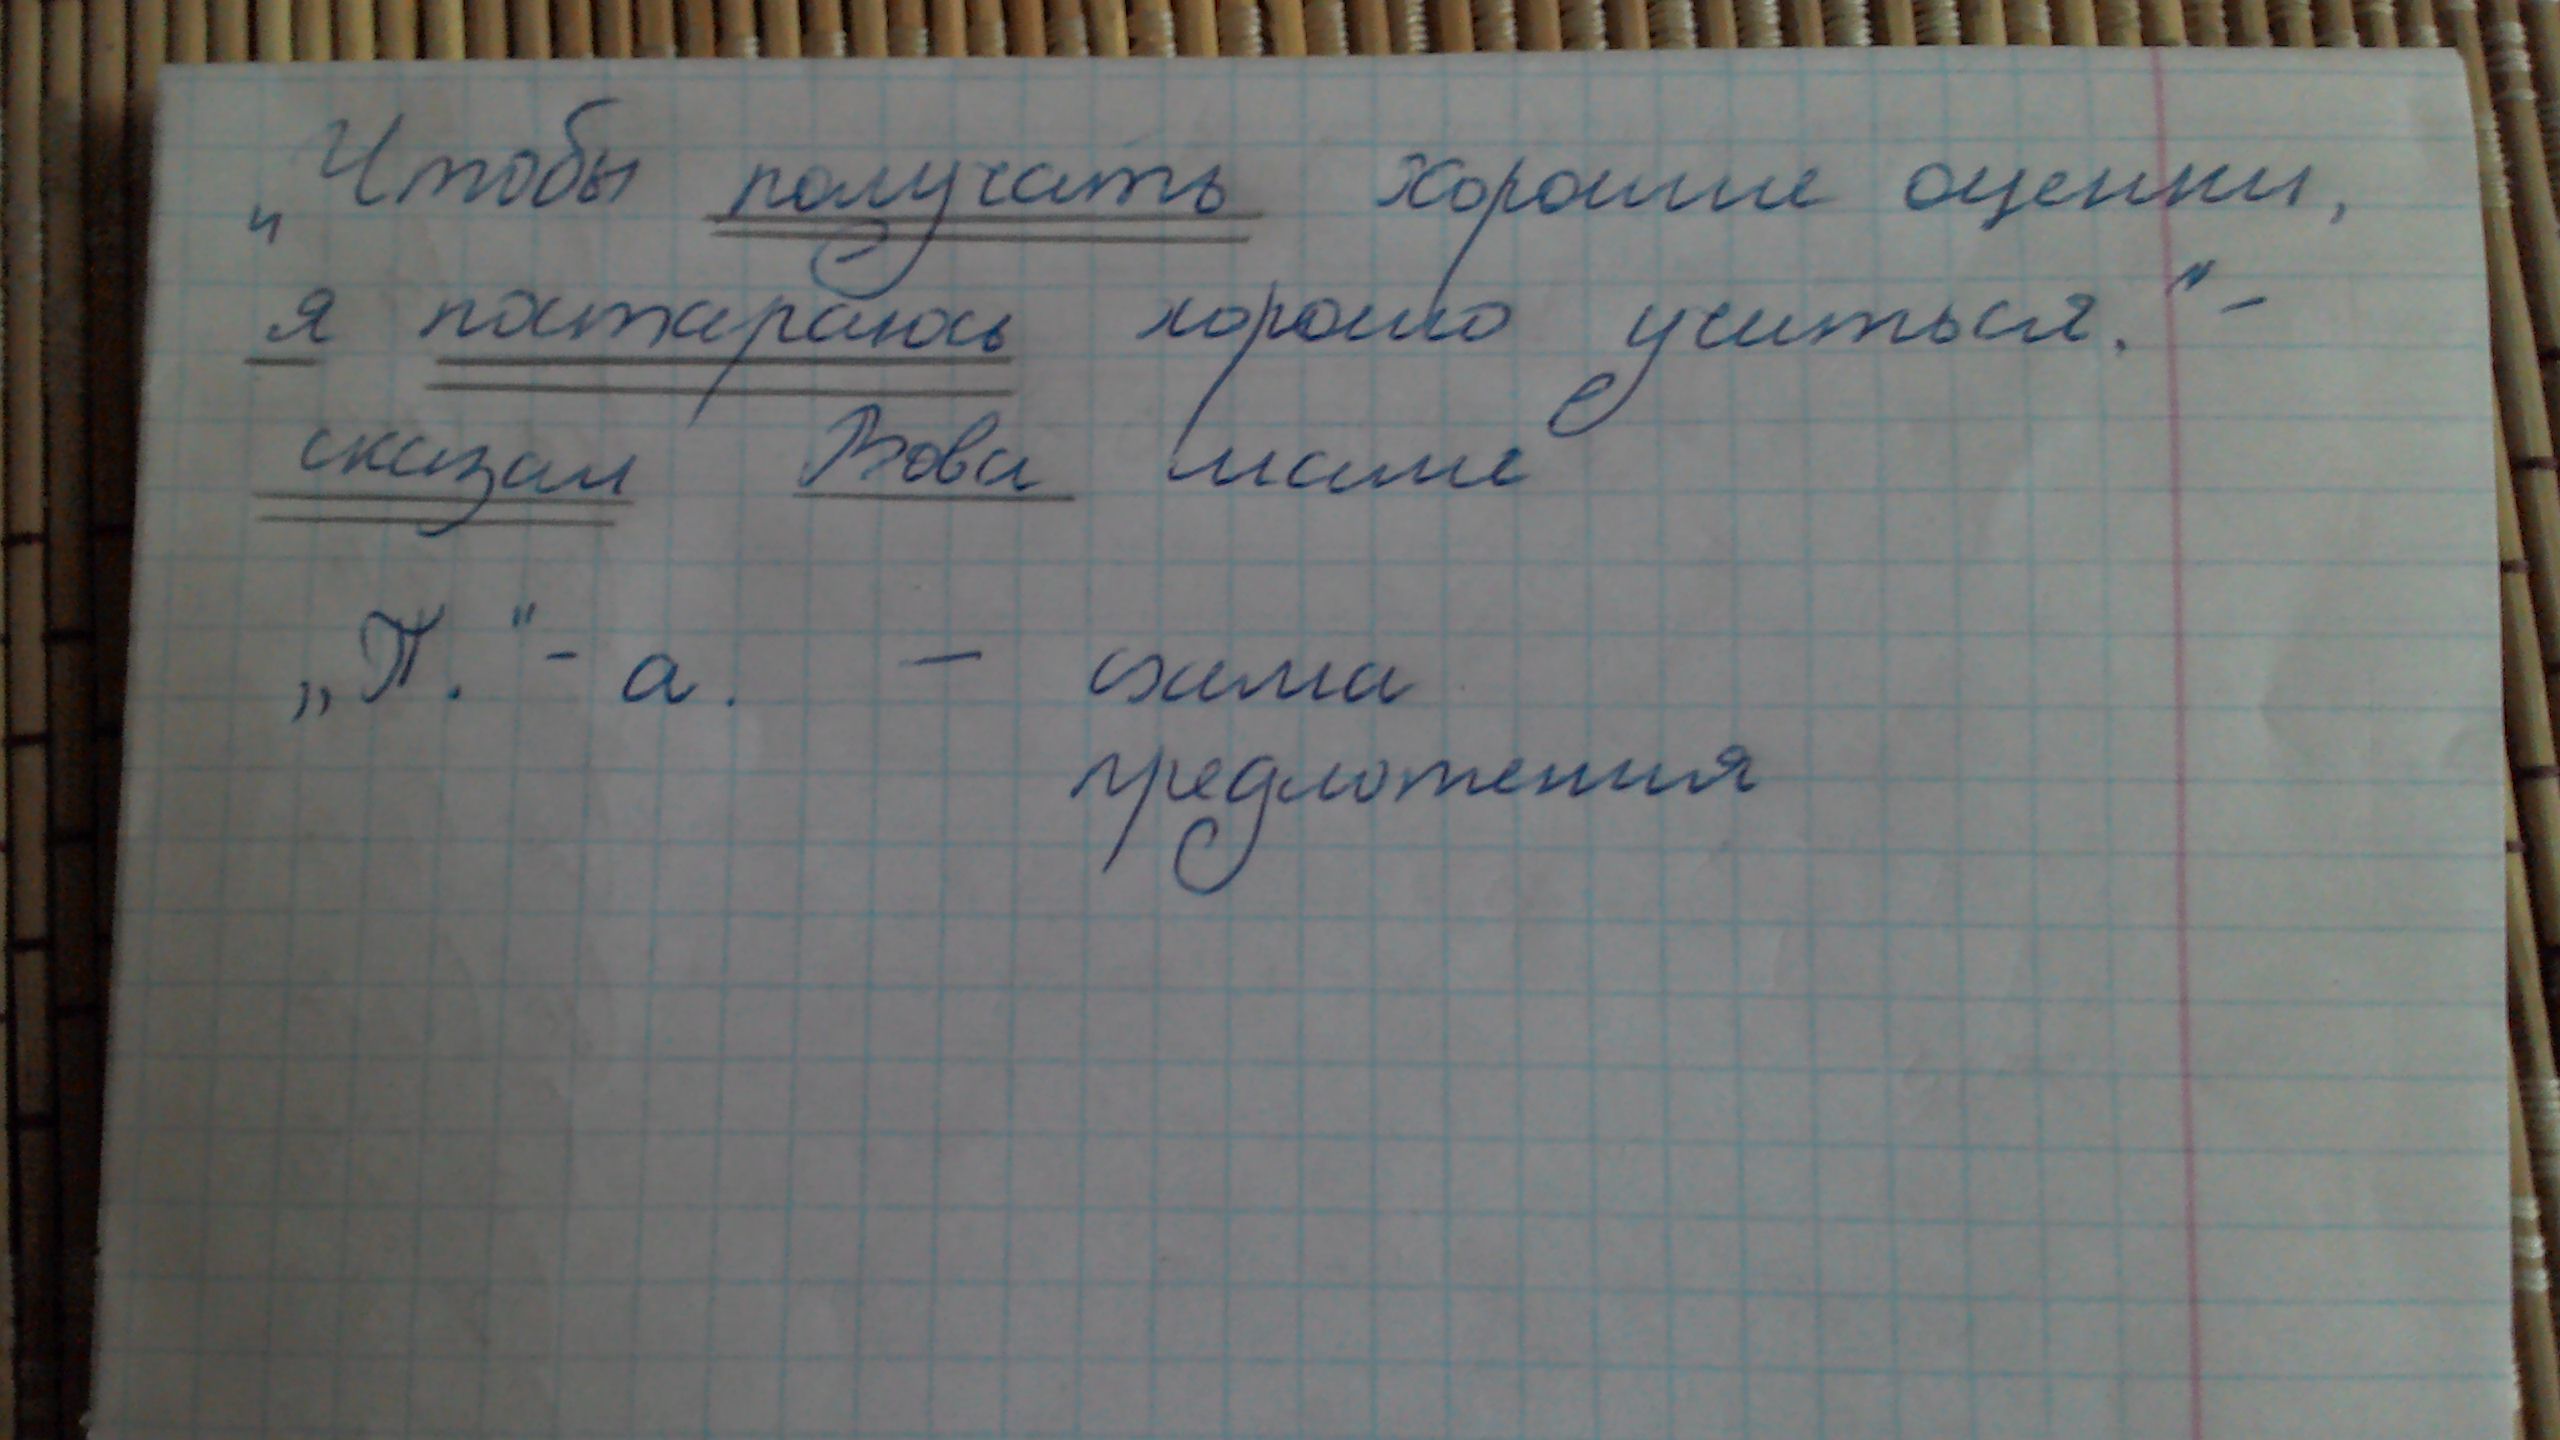 „Чтобы получать хорошие оценки,
я постараюсь хорошо учиться." -
сказал Вова маме
„П." - а. — схема
предложения